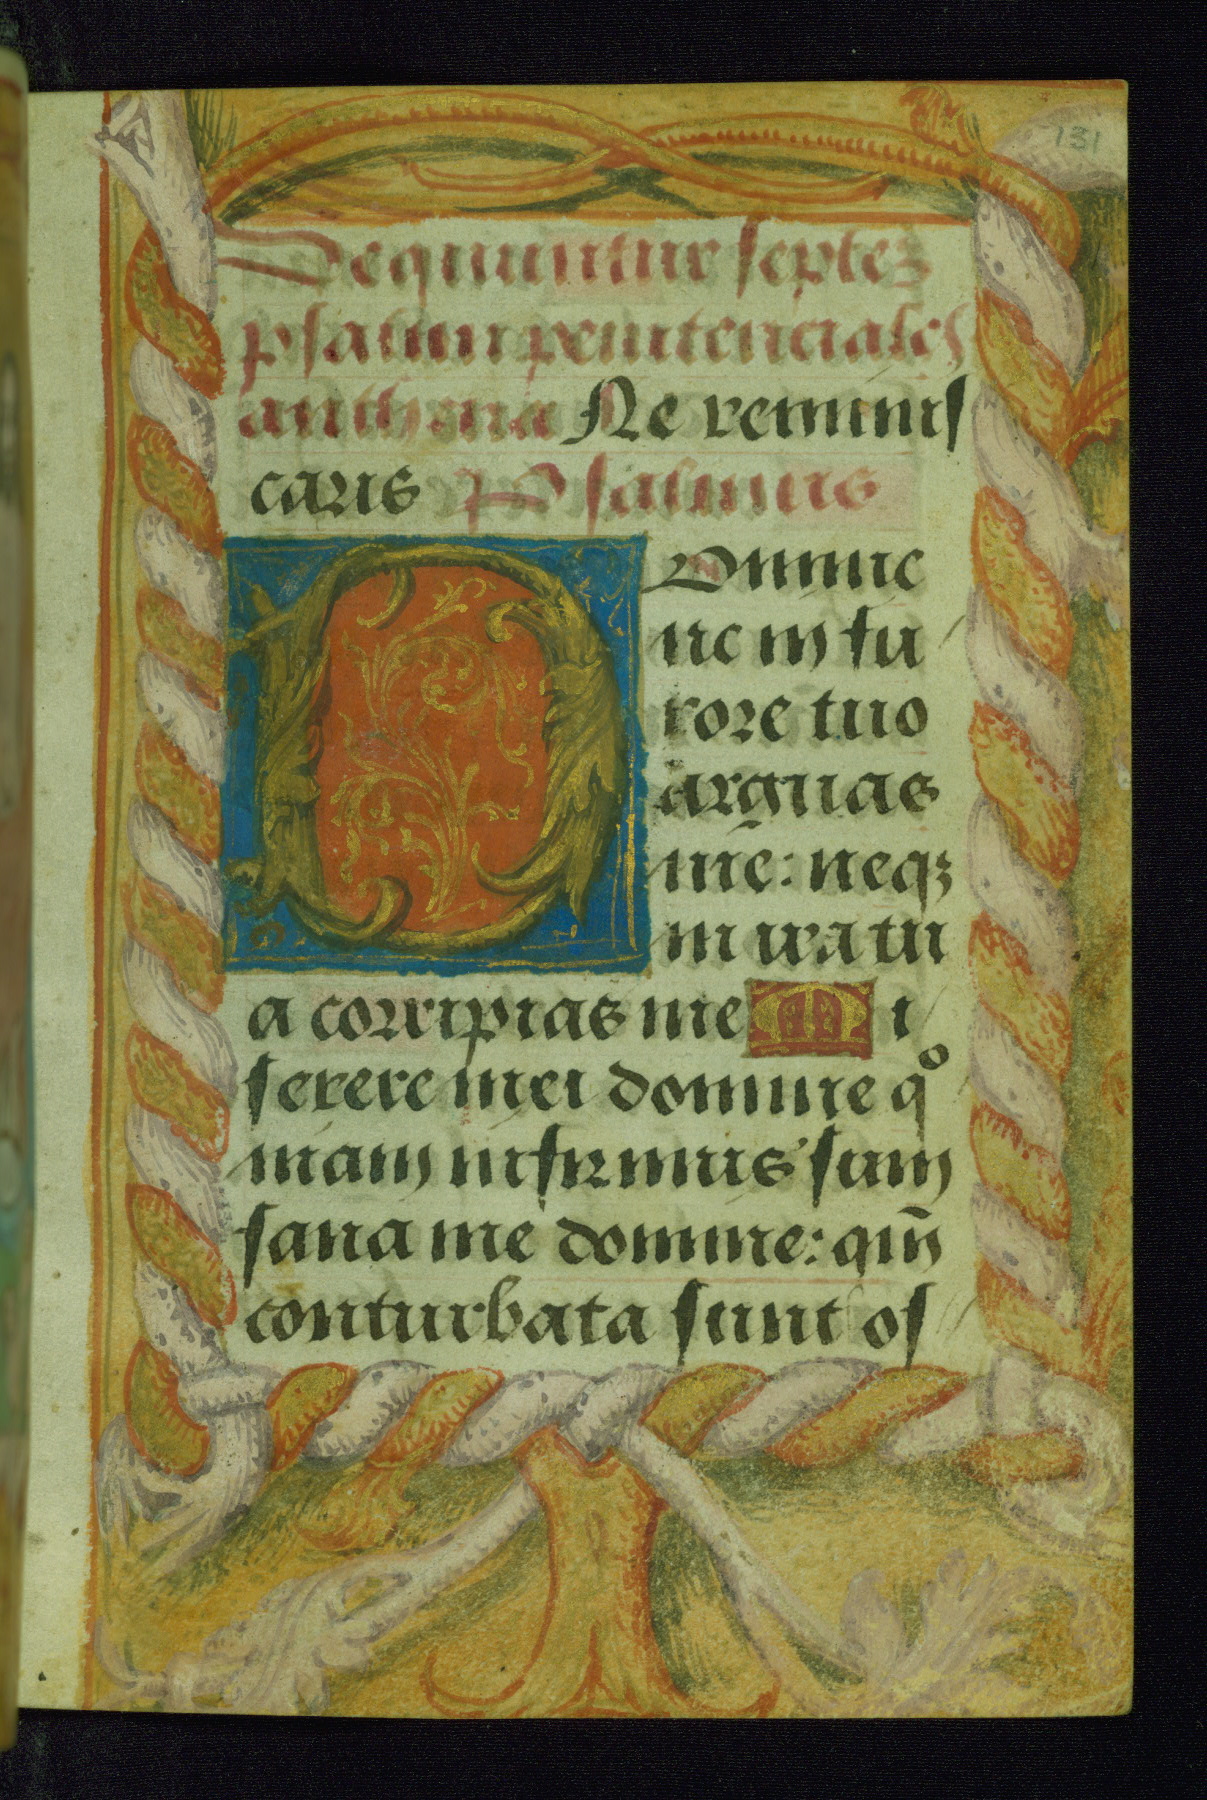 131
Sequuntur septez
psalmi penitenciales
anthena Ne reminis
caris Psalmus
Domine
ne in fu
rore tuo
arguas
me: neqz
in ira tu
a corripias me Mi
serere mei domine qo
niam infirmus sum
sana me domine: qm̄
conturbata sunt os